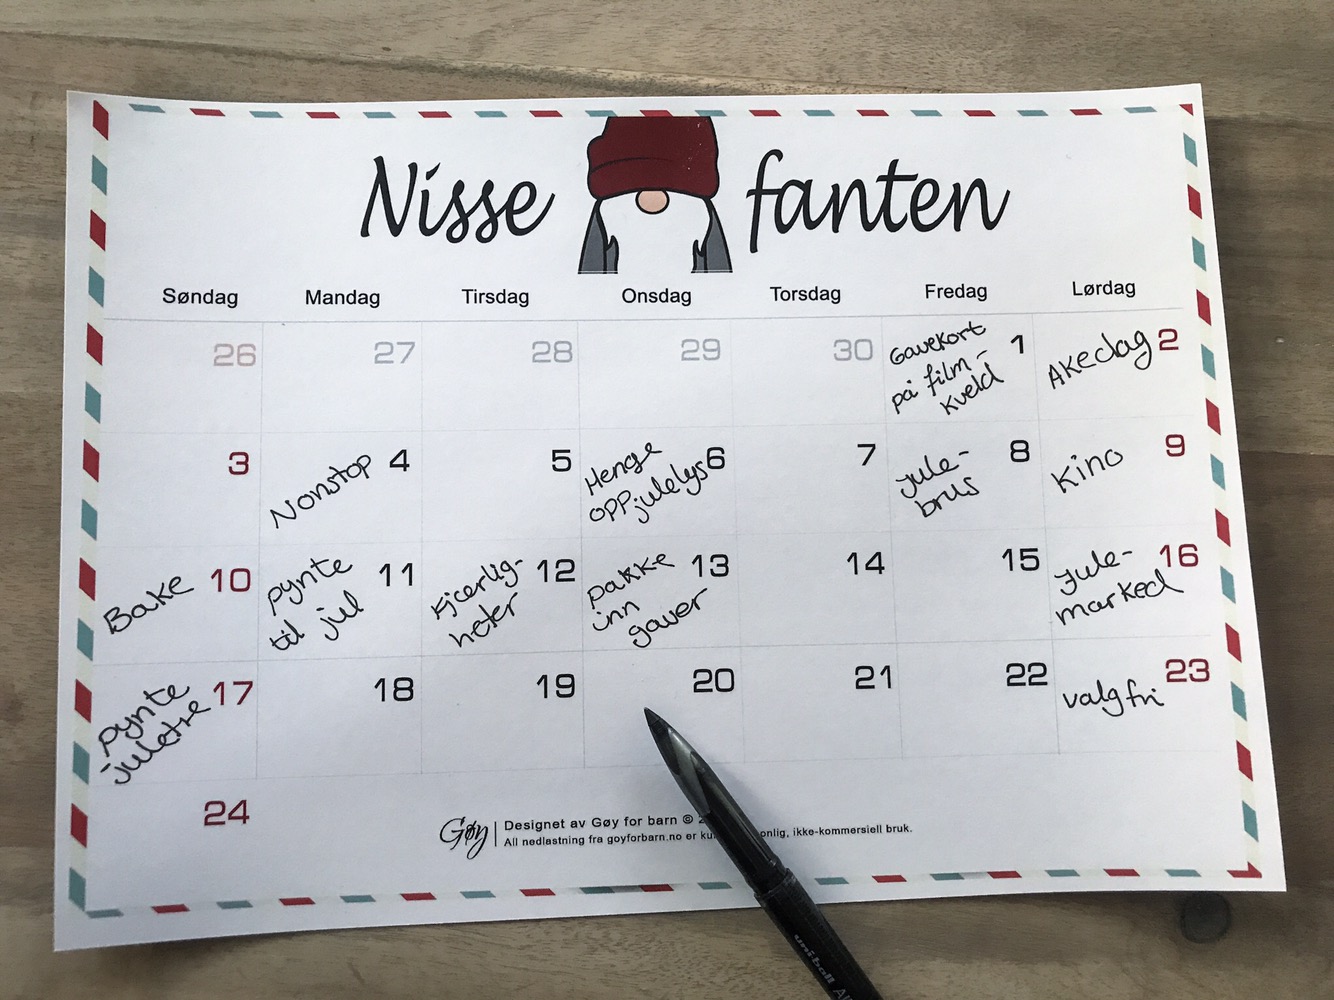 Nisse fanten
Søndag Mandag Tirsdag Onsdag Torsdag Fredag Lørdag
26 27 28 29 30 1 2
Gavekort
på film-
kveld
Akedag
3 4 5 6 7 8 9
Nonstop
Henge
opp julelys
Jule-
brus
Kino
10 11 12 13 14 15 16
Bake
pynte
til jul
Kjærlig-
heter
pakke
inn
gaver
Jule-
marked
17 18 19 20 21 22 23
pynte
juletre
valgfri
24
Gøy
Designet av Gøy for barn ©
All nedlastning fra goyforbarn.no er ikke-kommersiell bruk.
uni-ball